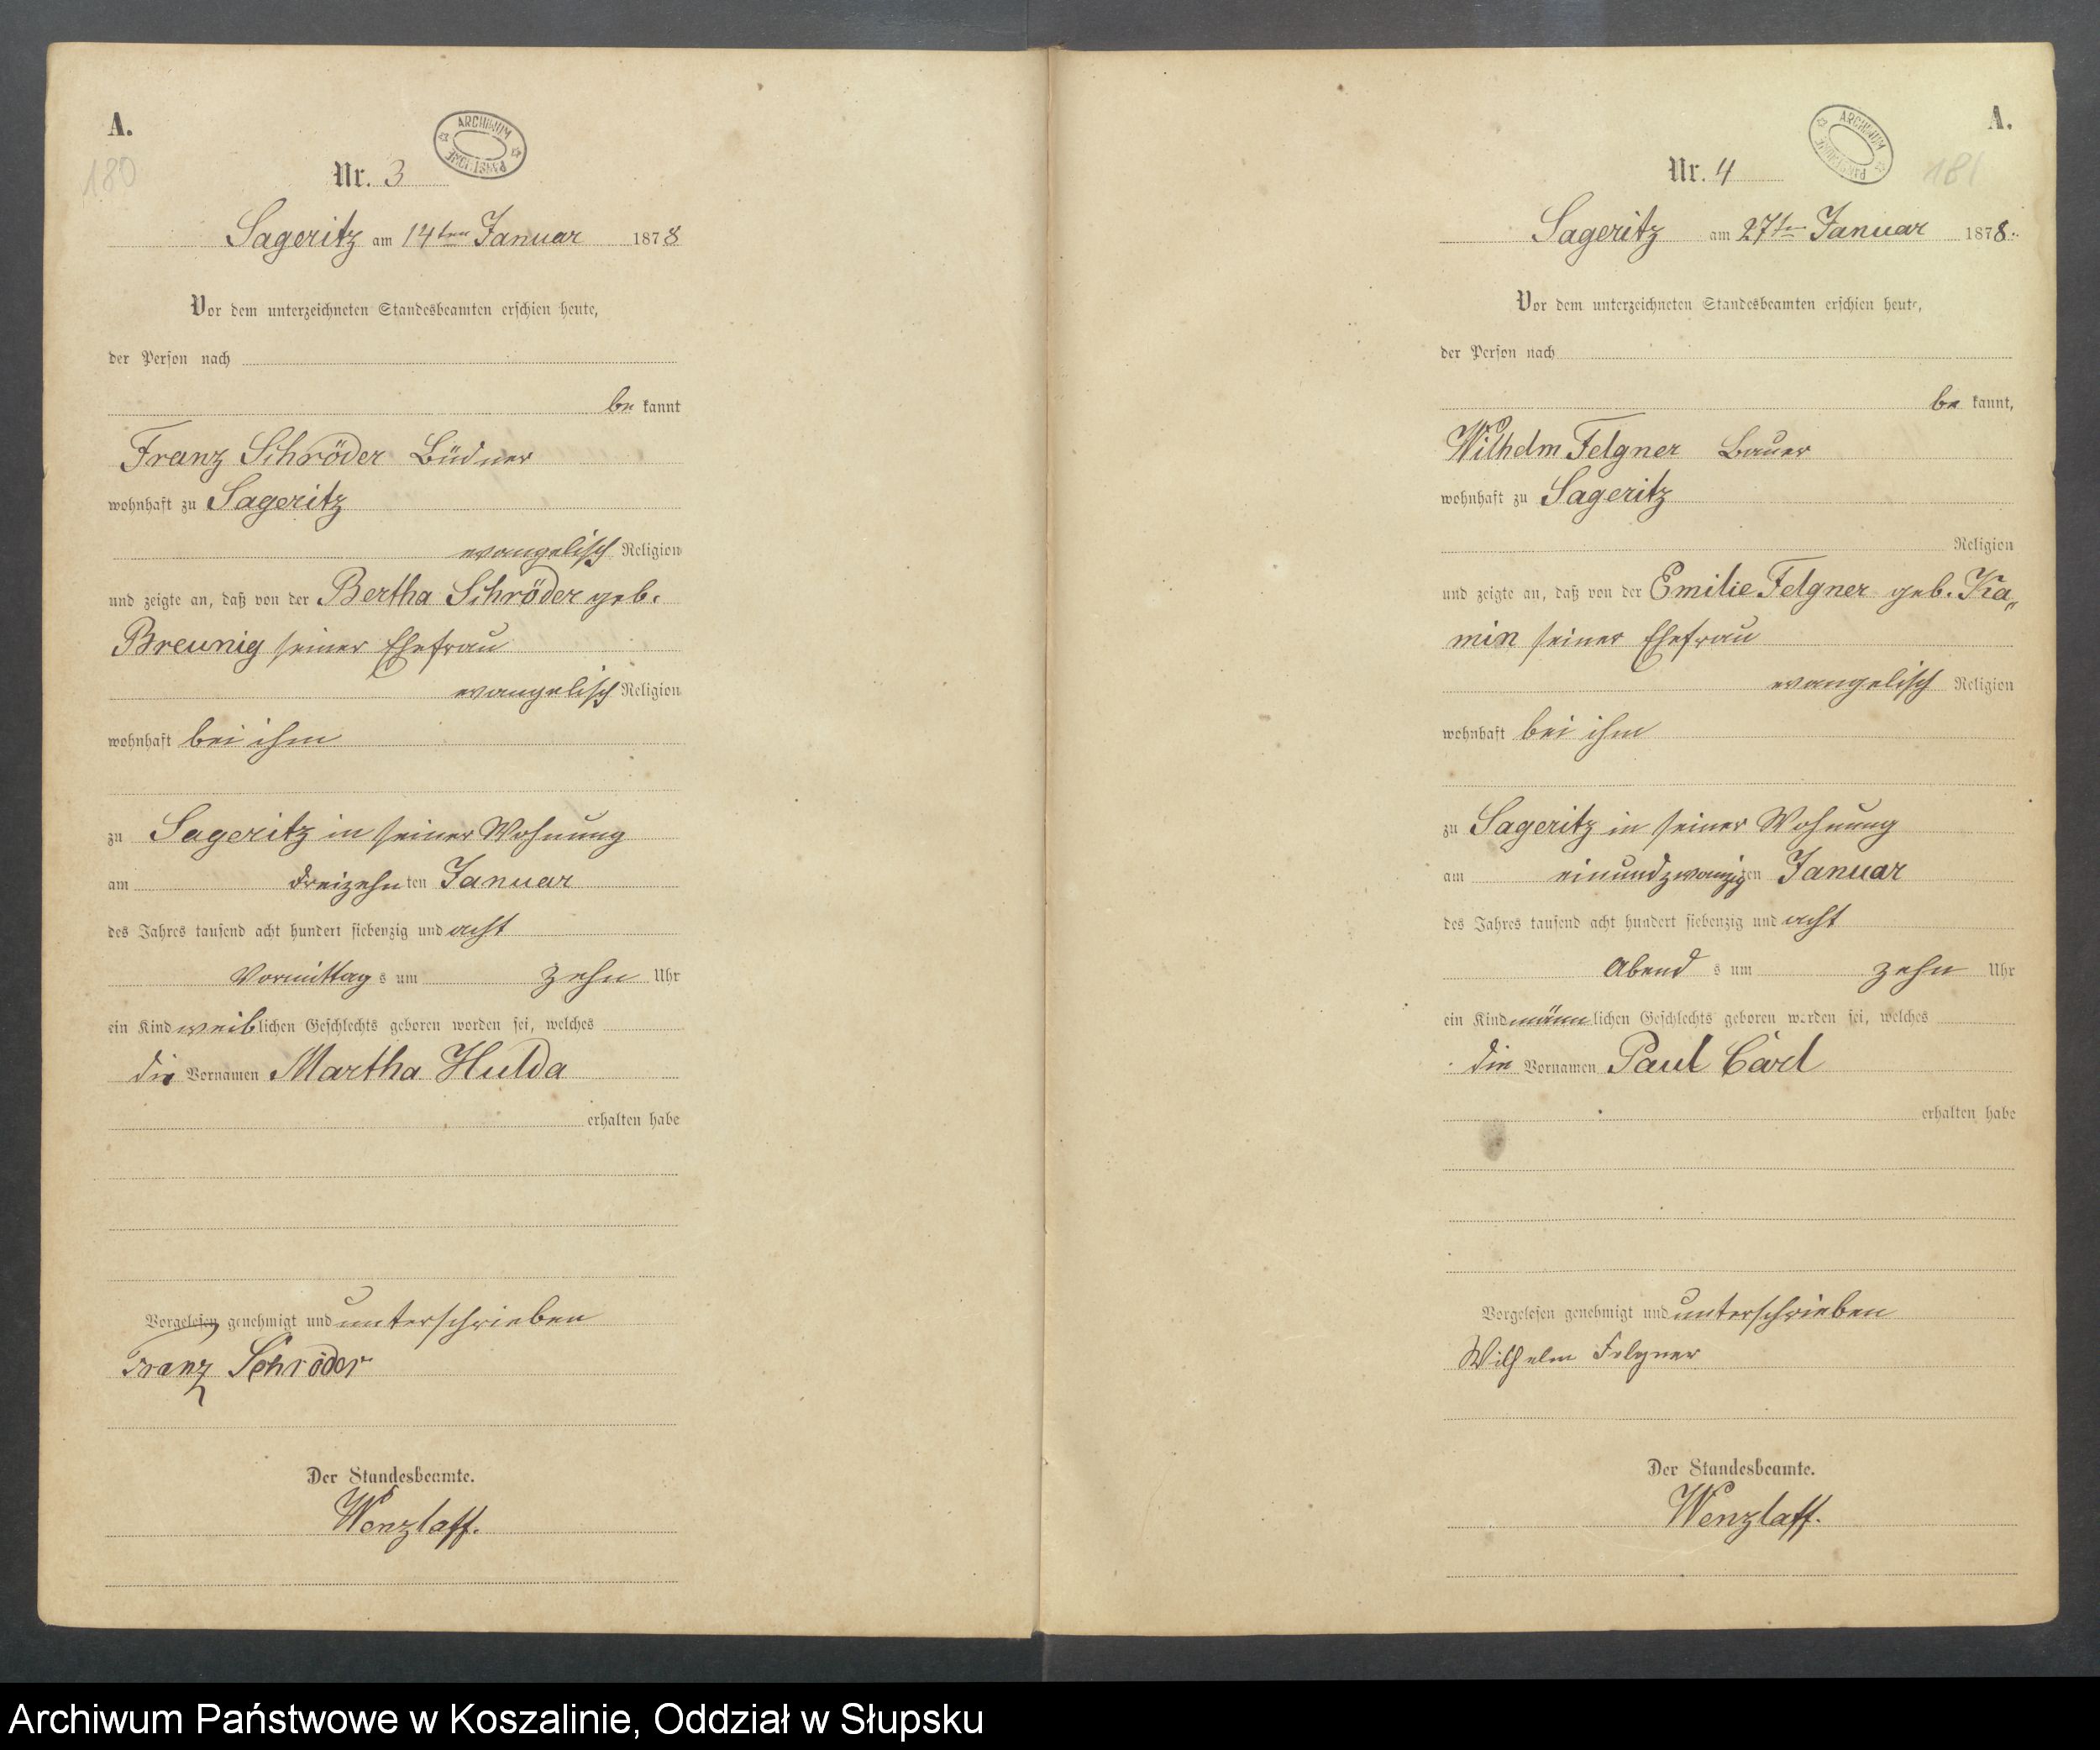 A.
180
ARCHIWUM PAŃSTWOWE
Nr. 3
Sageritz am 14ten Januar 1878
Vor dem unterzeichneten Standesbeamten erschien heute,
der Person nach
be kannt
Franz Schröder Büdner
wohnhaft zu Sageritz
evangelisch Religion
und zeigte an, daß von der Bertha Schröder geb.
Breunig seiner Ehefrau
evangelisch Religion
wohnhaft bei ihm
zu Sageritz in seiner Wohnung
am dreizehnten Januar
des Jahres tausend acht hundert siebenzig und acht
Vormittags um zehn Uhr
ein Kind weiblichen Geschlechts geboren worden sei, welches
die Vornamen Martha Hulda
erhalten habe
Vorgelesen genehmigt und unterschrieben
Franz Schröder
Der Standesbeamte.
Wenzlaff.
A.
181
ARCHIWUM PAŃSTWOWE
Nr. 4
Sageritz am 27ten Januar 1878.
Vor dem unterzeichneten Standesbeamten erschien heute,
der Person nach
be kannt,
Wilhelm Felgner Bauer
wohnhaft zu Sageritz
Religion
und zeigte an, daß von der Emilie Felgner geb. Ka„
min seiner Ehefrau
evangelisch Religion
wohnhaft bei ihm
zu Sageritz in seiner Wohnung
am einundzwanzigten Januar
des Jahres tausend acht hundert siebenzig und acht
Abends um zehn Uhr
ein Kind männlichen Geschlechts geboren worden sei, welches
die Vornamen Paul Carl
erhalten habe
Vorgelesen genehmigt und unterschrieben
Wilhelm Felgner
Der Standesbeamte.
Wenzlaff.
Archiwum Państwowe w Koszalinie, Oddział w Słupsku